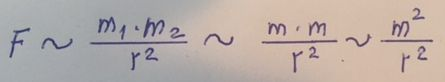 F ~ m₁·m₂/r² ~ m·m/r² ~ m²/r²